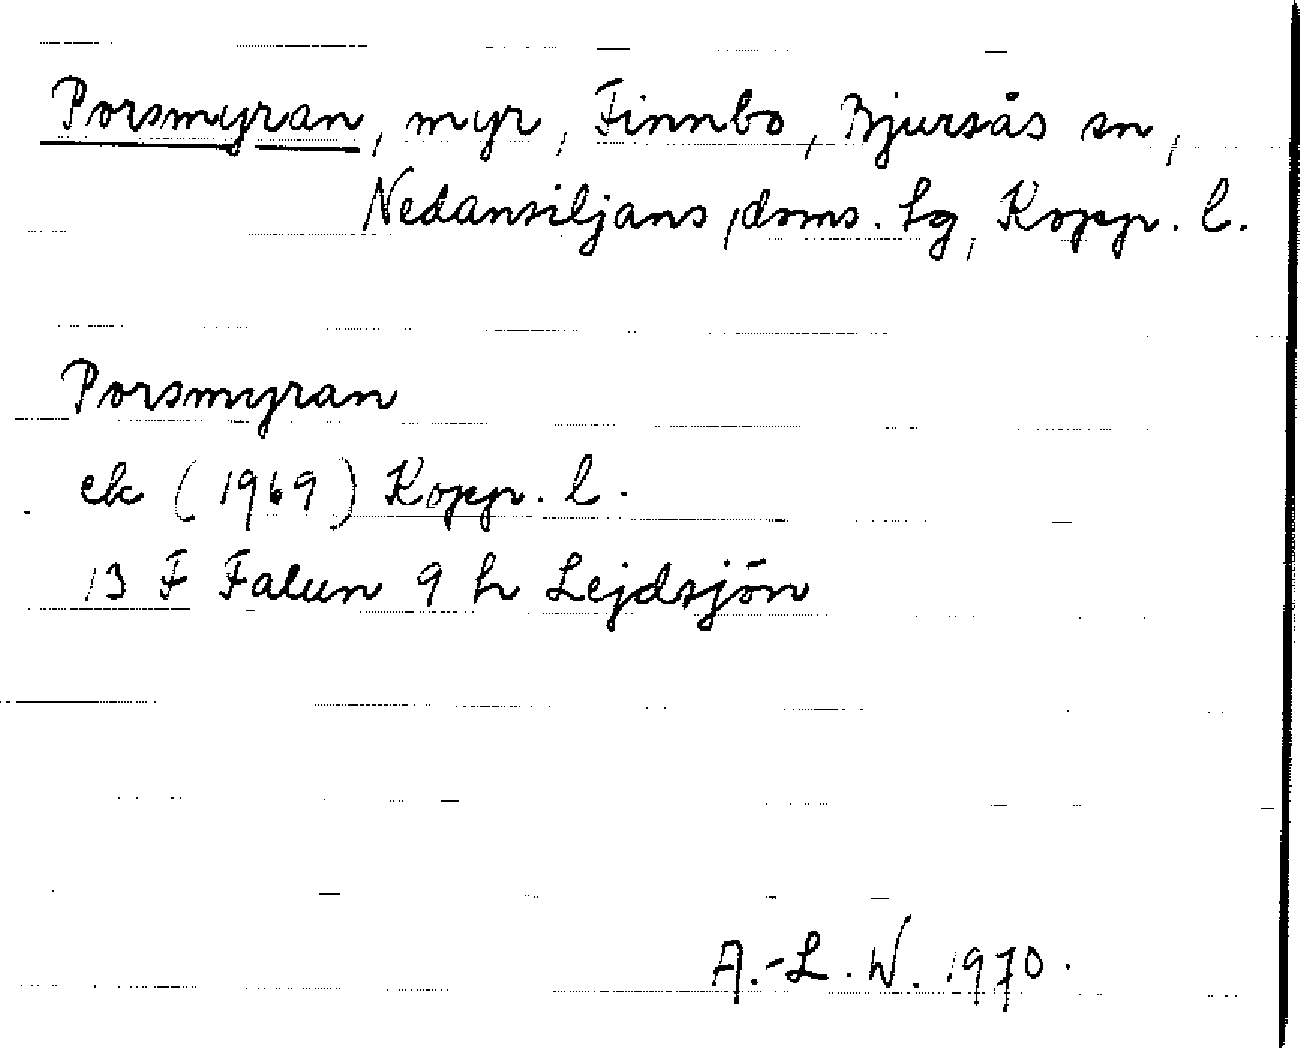 Porsmyran, myr, Finnbo, Bjursås sn,
Nedansiljans doms. hg, Kopp. l.
Porsmyran
ek (1969) Kopp. l.
13 F Falun 9 h Lejdsjön
A.-L. W. 1970.